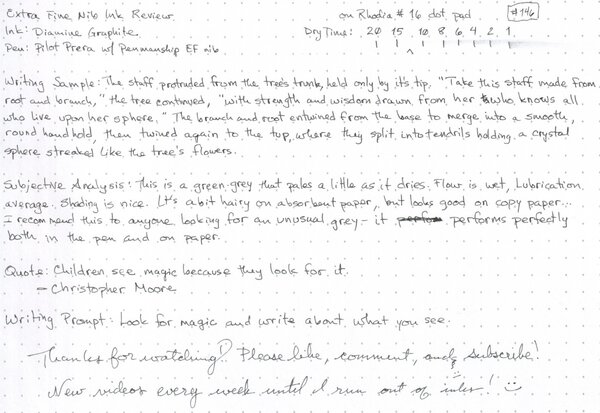 Extra Fine Nib Ink Review on Rhodia # 16 dot pad #146
Ink: Diamine Graphite Dry Time: 20 15 10 8 6 4 2 1
Pen: Pilot Prera w/ Penmanship EF nib
Writing Sample: The staff protruded from the tree's trunk, held only by it's tip. "Take this staff made from
root and branch," the tree continued, "with strength and wisdom drawn from her who knows all
who live upon her sphere." The branch and root entwined from the base to merge into a smooth,
round handhold, then twined again to the top, where they split into tendrils holding a crystal
sphere streaked like the tree's flowers.
Subjective Analysis: This is a green grey that pales a little as it dries. Flow is wet, Lubrication
average. Shading is nice. It's a bit hairy on absorbent paper, but looks good on copy paper...
I recommend this to anyone looking for an unusual grey - it performs perfectly
both in the pen and on paper.
Quote: Children see magic because they look for it.
- Christopher Moore
Writing Prompt: Look for magic and write about what you see.
Thanks for watching! Please like, comment, and subscribe!
New videos every week until I run out of inks! :)